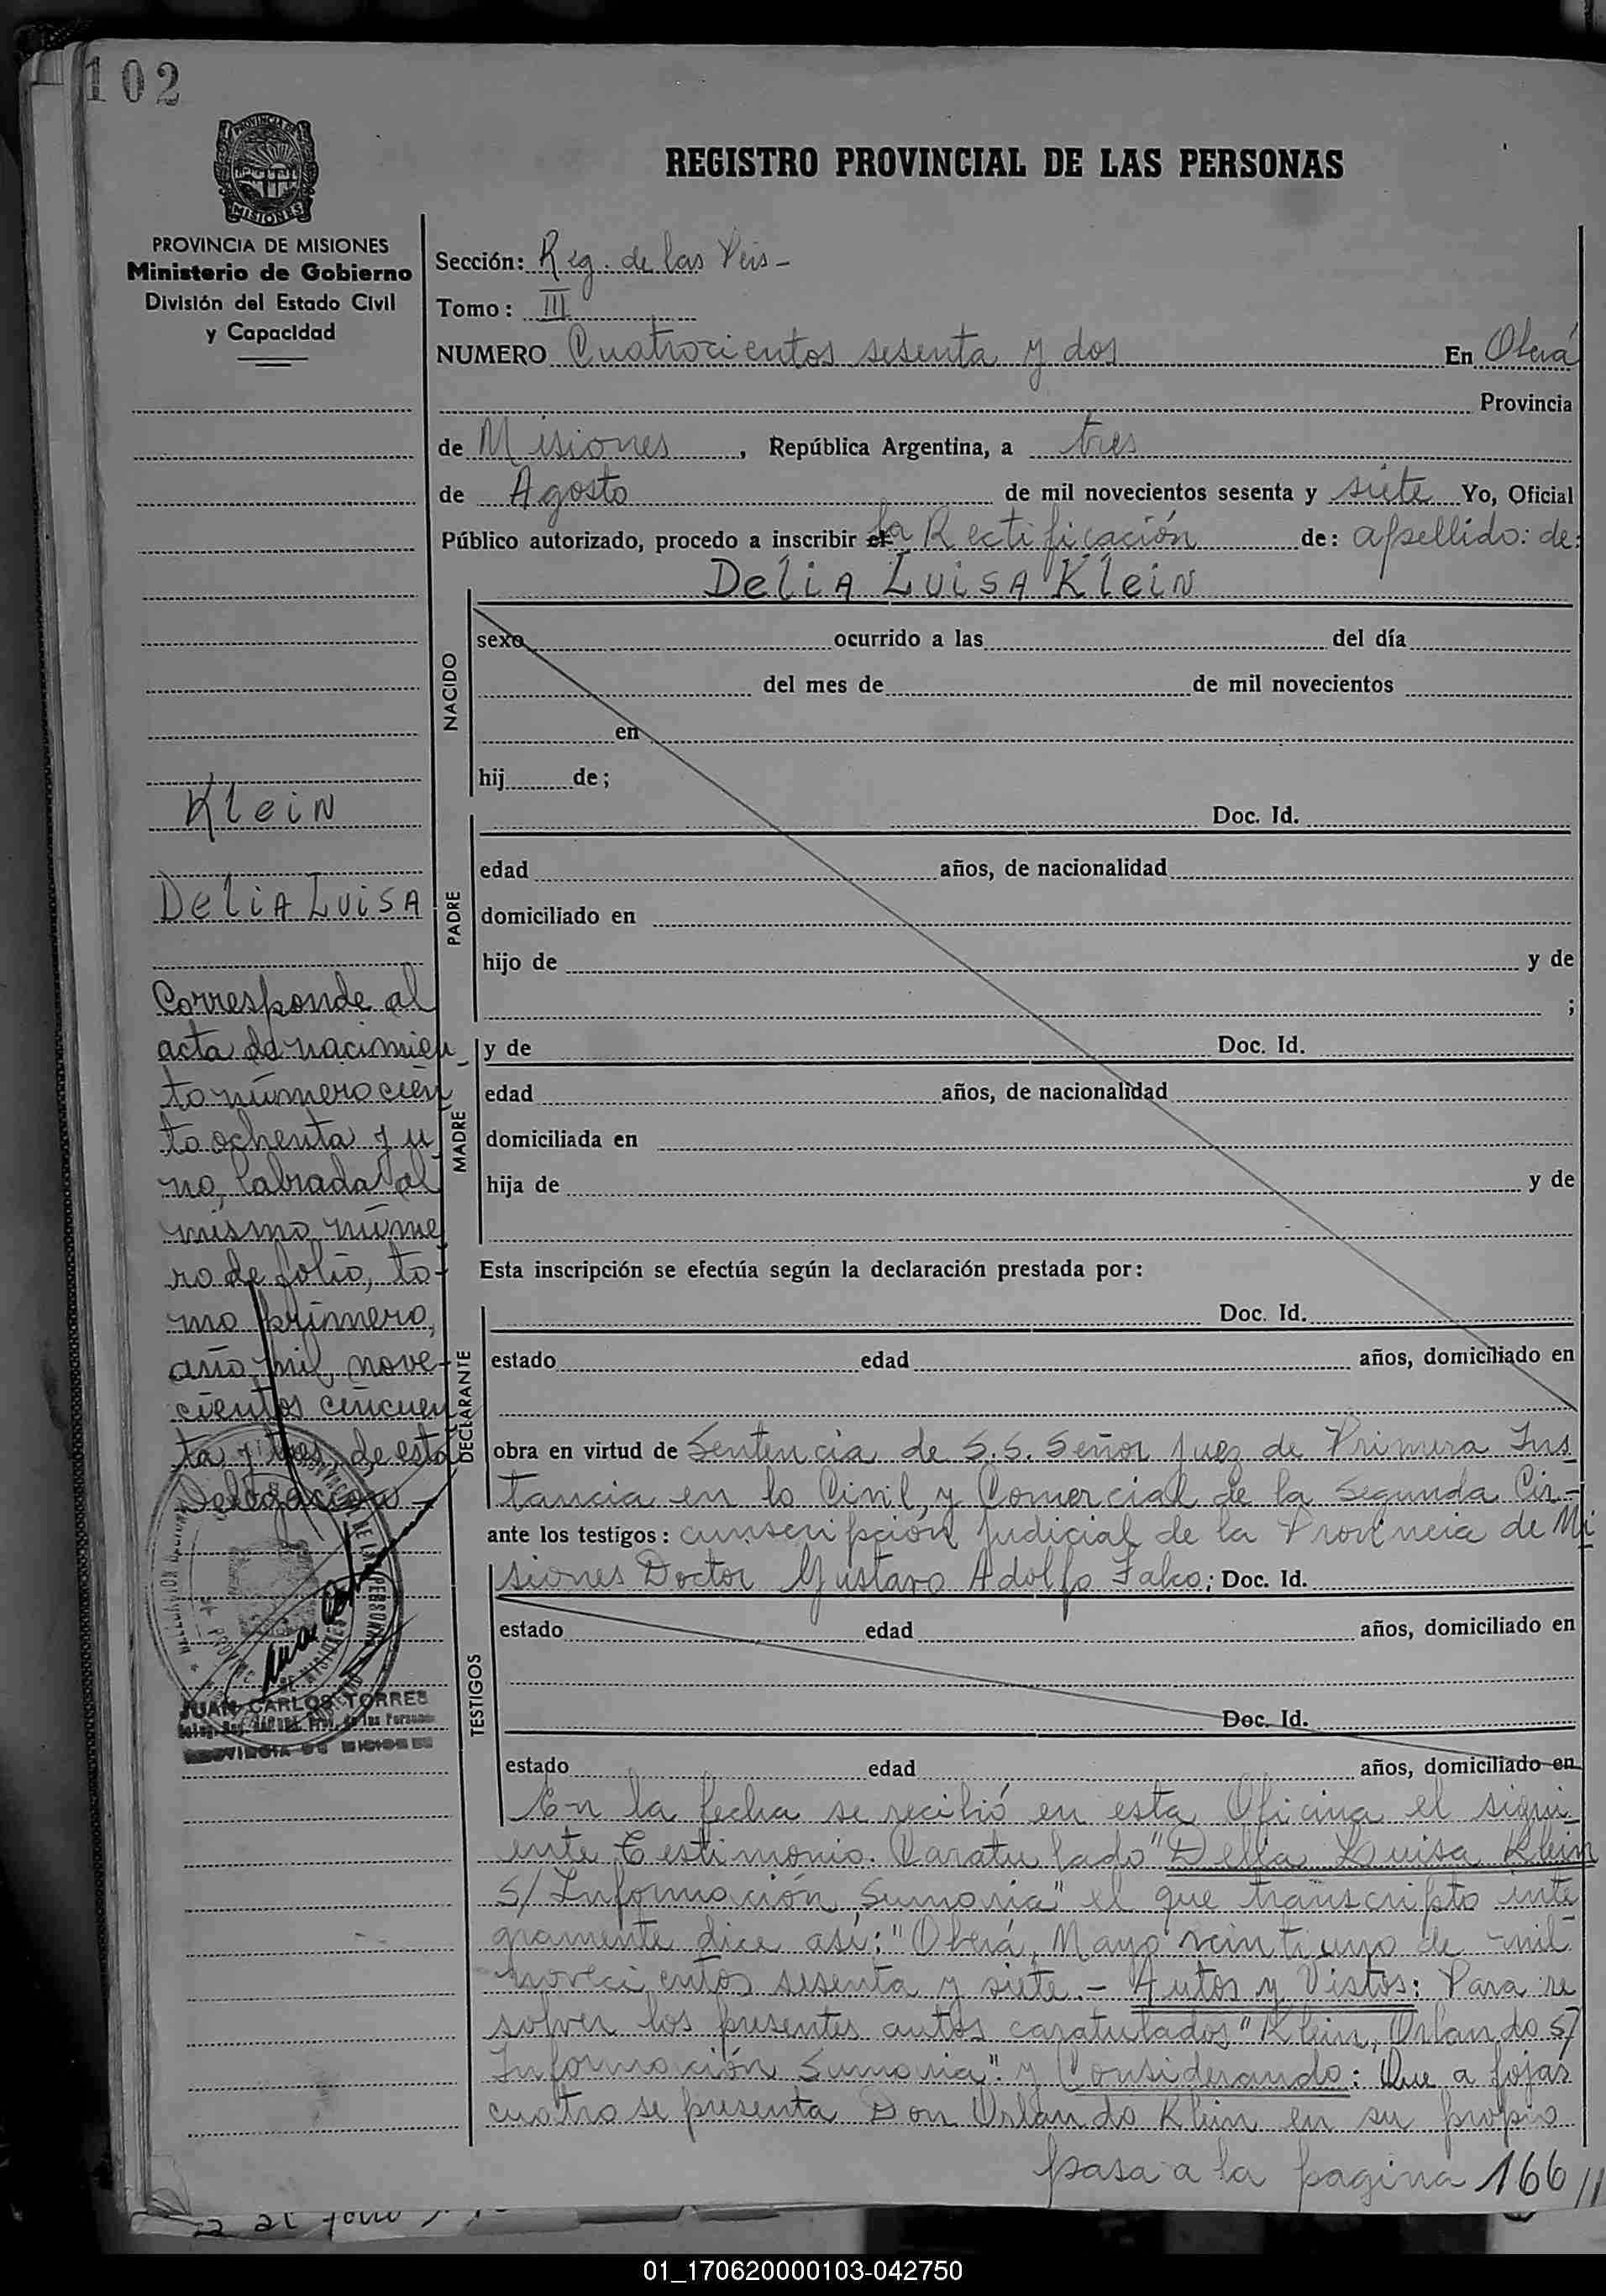 102
REGISTRO PROVINCIAL DE LAS PERSONAS
PROVINCIA DE
MISIONES
PROVINCIA DE MISIONES
Ministerio de Gobierno
División del Estado Civil
y Capacidad
Klein
Delia Luisa
Corresponde al
acta de nacimien
to número cien
to ochenta y u
no, labrada al
mismo núme
ro de folio, to-
mo primero,
año mil nove-
cientos cincuen
ta y tres, de esta
Delegación
JUAN CARLOS TORRES
PROVINCIA DE MISIONES
Sección: Reg. de las Pers-
Tomo: III
NUMERO Cuatrocientos sesenta y dos En Oberá
Provincia
de Misiones, República Argentina, a tres
de Agosto de mil novecientos sesenta y siete Yo, Oficial
Público autorizado, procedo a inscribir el la Rectificación de: apellido: de:
Delia Luisa Klein
NACIDO
sexo ocurrido a las del día
del mes de de mil novecientos
en
hij de;
Doc. Id.
PADRE
edad años, de nacionalidad
domiciliado en
hijo de y de
;
y de Doc. Id.
MADRE
edad años, de nacionalidad
domiciliada en
hija de y de
Esta inscripción se efectúa según la declaración prestada por:
Doc. Id.
DECLARANTE
estado edad años, domiciliado en
obra en virtud de Sentencia de S.S. Señor Juez de Primera Ins
tancia en lo Civil, y Comercial de la Segunda Cir-
ante los testigos: cunscripción Judicial de la Provincia de Mi
siones Doctor Gustavo Adolfo Falco; Doc. Id.
TESTIGOS
estado edad años, domiciliado en
Doc. Id.
estado edad años, domiciliado en
En la fecha se recibió en esta Oficina el sigui
ente Testimonio. Caratulado "Delia Luisa Klein
S/ Información Sumaria" el que transcripto inte
gramente dice así: "Oberá, Mayo veintiuno de mil
novecientos sesenta y siete.- Autos y Vistos: Para re
solver los presentes autos caratulados "Klein, Orlando S/
Información Sumaria". y Considerando: Que a fojas
cuatro se presenta Don Orlando Klein en su propio
pasa a la pagina 166//
01_170620000103-042750